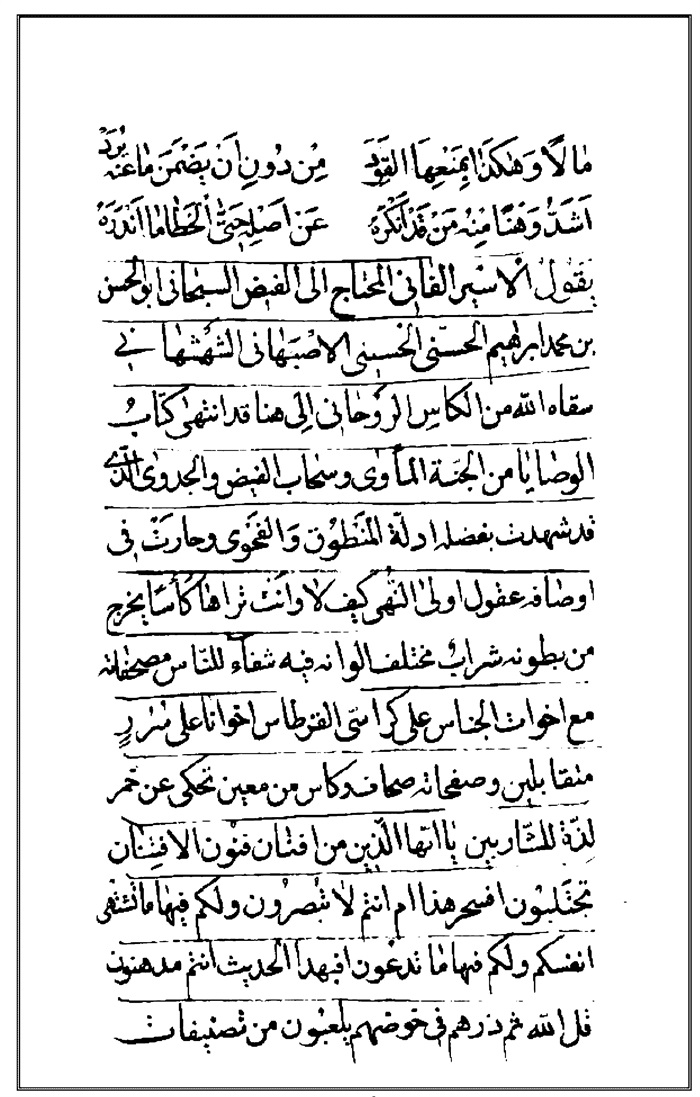 مالا وهكذا يمنعها القود من دون أن يضمن ما عنه يرد
اشد وهنا منه من قد انكره عن اصله حتى الخطا ما اندره
يقول الاسير الفاني المحتاج الى الفيض السبحاني ابو الحسن
بن محمد ابراهيم الحسني الحسيني الاصبهاني الشهشهاني
سقاه الله من الكاس الروحاني الى هنا قد انتهى كتاب
الوصايا من الجنة المأوى وسحاب الفيض والجدوى الذي
قد شهدت بفضله ادلة المنطوق والفحوى وحارت في
اوصافه عقول اولى النهى كيف لا وانت تراها كأسا يخرج
من بطونه شراب مختلف الوانه فيه شفاء للناس
مع اخوات الجناس على كراسى القرطاس اخوانا على سرر
متقابلين وصفحاته صحاف وكاس من معين تحكى عن خمر
لذة للشاربين يا ايها الذين من افنان فنون الافتنان
تجتلبون افسحر هذا ام انتم لا تبصرون ولكم فيها ما تشتهى
انفسكم ولكم فيها ما تدعون افبهذا الحديث انتم مدهنون
قل الله ثم ذرهم في خوضهم يلعبون من تصنيفات